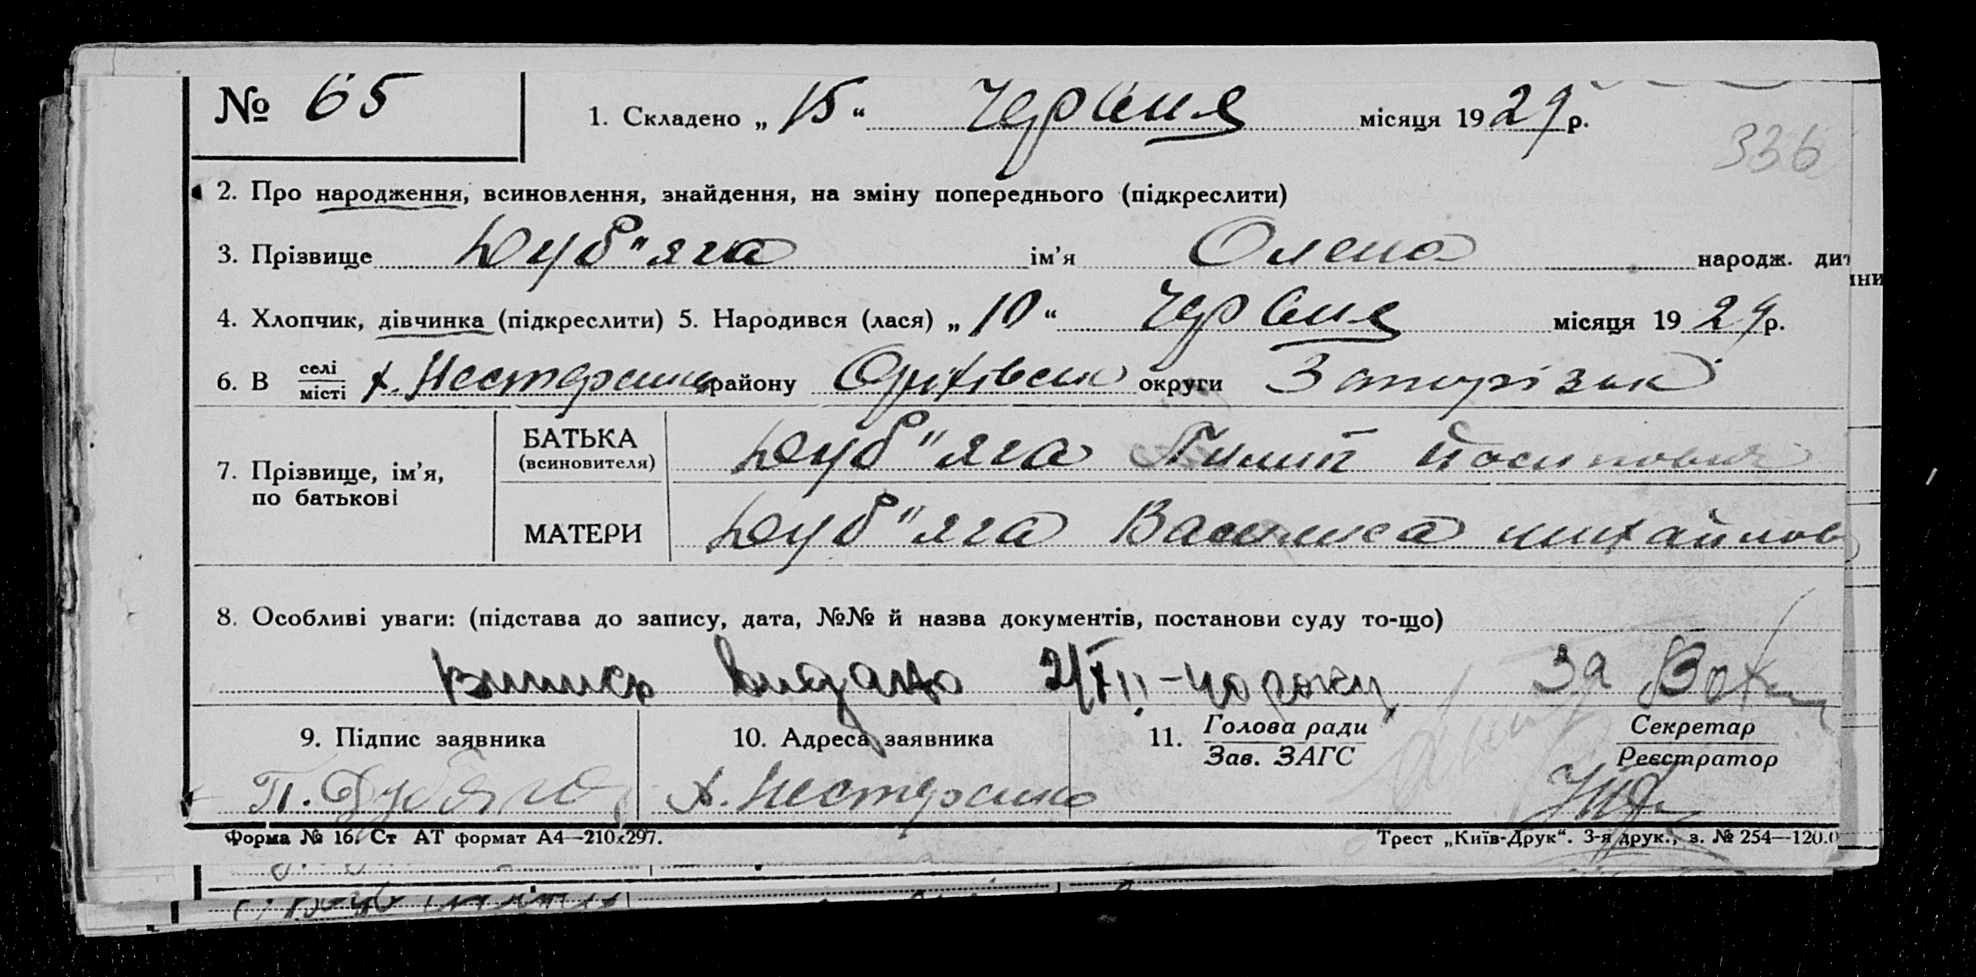 № 65
1. Складено „ 15 “ червня місяця 1929 р.
336
2. Про народження, всиновлення, знайдення, на зміну попереднього (підкреслити)
3. Прізвище Дуб"яга ім'я Олена народж. дит
4. Хлопчик, дівчинка (підкреслити) 5. Народився (лася) „ 10 “ червня місяця 1929 р.
6. В селі/місті х. Нестерянка району Оріхівськ округи Запорізьк
7. Прізвище, ім'я, по батькові
БАТЬКА (всиновителя) Дуб"яга Пилип Йосипович
МАТЕРИ Дуб"яга Василиса михайлов
8. Особливі уваги: (підстава до запису, дата, №№ й назва документів, постанови суду то-що)
Випись видано 2/XII-40 року За
9. Підпис заявника 10. Адреса заявника 11. Голова ради/Зав. ЗАГС Секретар/Реєстратор
П. Дубяга х. Нестерянка
Форма № 16. Ст АТ формат А4—210х297. Трест „Київ-Друк“. 3-я друк., з. № 254—120.0